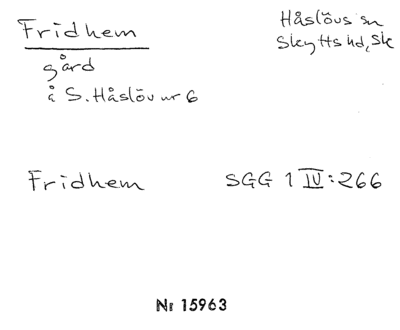 Fridhem
Håslövs sn
Skytts hd, Sk
gård
å S. Håslöv nr 6
Fridhem SGG 1 IV:266
Nr 15963